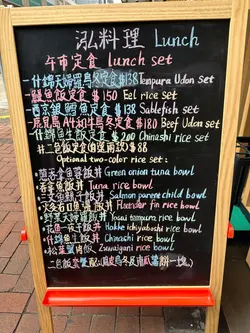 泓料理 Lunch
午市定食 lunch set
什錦天婦羅烏冬定食 $138 Tempura Udon set
鰻魚飯定食 $150 Eel rice set
西京銀鱈魚定食 $138 Sablefish set
鹿兒島A4和牛烏冬定食 $180 Beef Udon set
什錦魚生飯定食 $200 Chirashi rice set
#二色飯定食 $88
Optional two-color rice set:
Green onion tuna bowl
吞拿魚飯丼 Tuna rice bowl
三文魚親子飯丼 Salmon parent child bowl
Flounder fin rice bowl
野菜天婦羅飯丼 Yasai tempura rice bowl
Hokke ichiyaboshi rice bowl
什錦魚生飯丼 Chirashi rice bowl
松葉蟹肉飯丼 Zuwaigani rice bowl